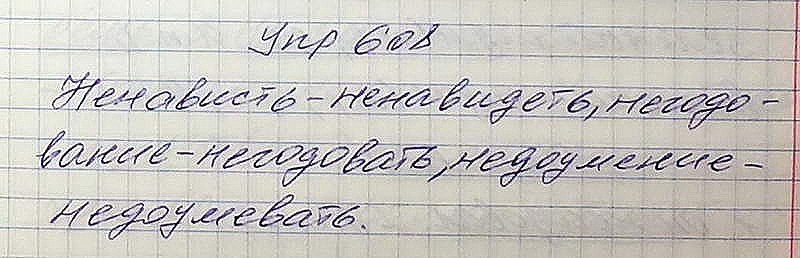 Упр 608
Ненависть – ненавидеть, негодо-
вание – негодовать, недоумение –
недоумевать.